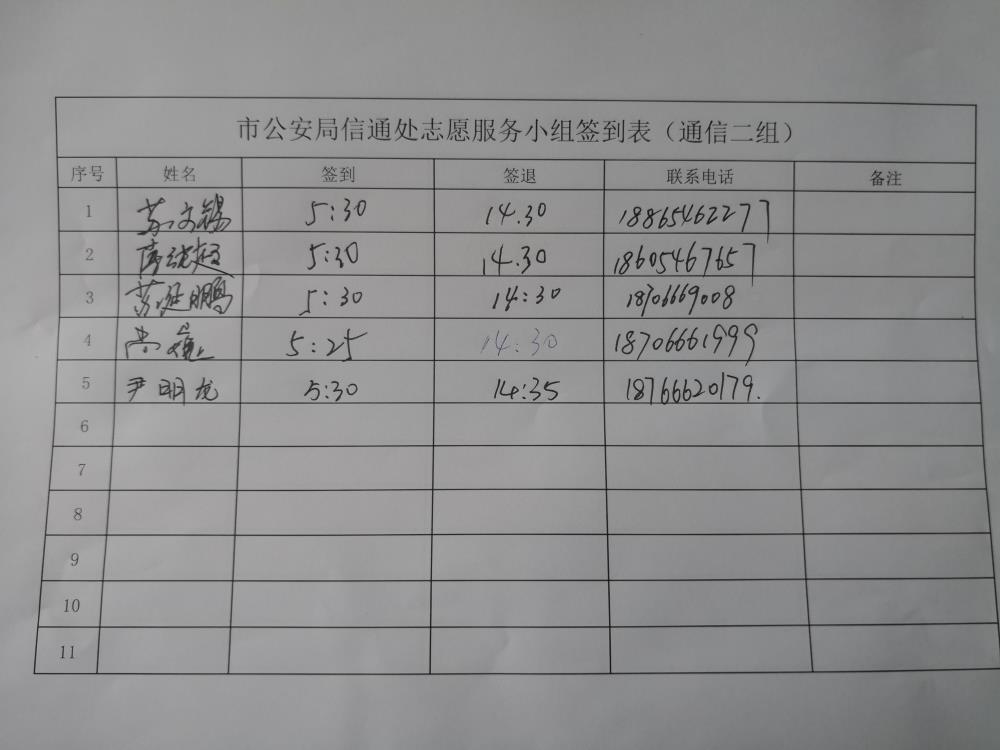 市公安局信通处志愿服务小组签到表（通信二组）
序号 姓名 签到 签退 联系电话 备注
1 苏文锡 5:30 14.30 18865462277
2 5:30 14.30 18605467657
3 苏延鹏 5:30 14:30 18706669008
4 5:25 14:30 18706661999
5 尹明龙 5:30 14:35 18766620179.
6
7
8
9
10
11